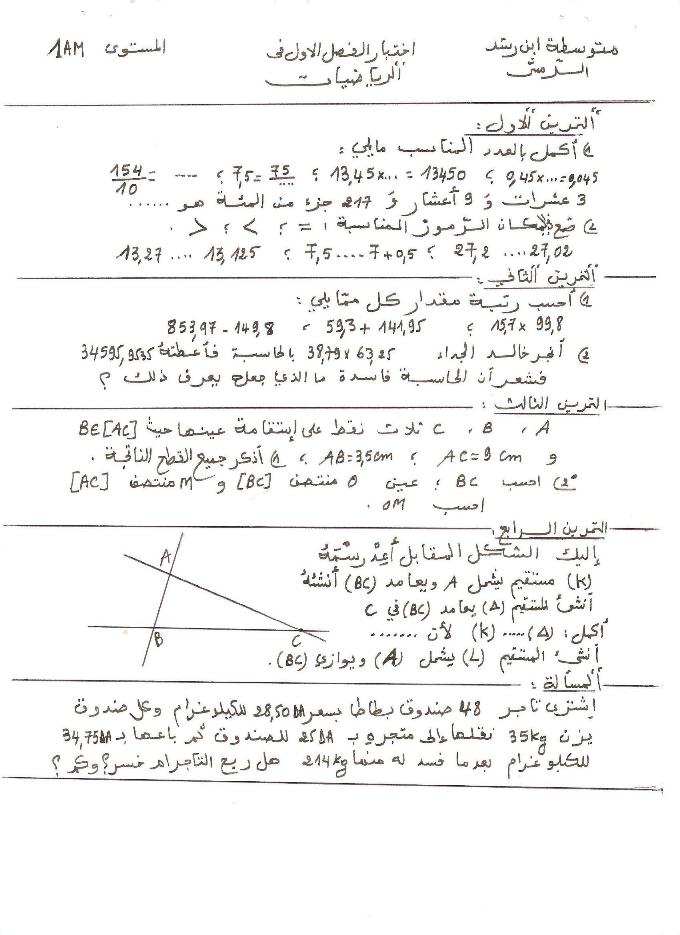 متوسطة ابن رشد اختبار الفصل الاول في المستوى 1AM
الرياضيات
التمرين الاول :
1) أكمل بالعدد المناسب مايلي :
0,45x...=0,045 ؟ 13,45x...=13450 ؟ 7,5=75/.... ؟ 154/10=----
3 عشرات و 9 أعشار و 217 جزء من المئة هو ......
2) ضع في المكان الرموز المناسبة : = ؟ > ؟ < .
27,2 .... 27,02 ؟ 7,5.....7+0,5 ؟ 13,27 .... 13,125
التمرين الثاني :
1) احسب رتبة مقدار كل ممايلي :
15,7x99,8 ؟ 59,3+141,95 ؟ 853,97-149,8
2) أنجز خالد الجداء 38,79x63,25 بالحاسبة فأعطته 34595,9535
فشعر أن الحاسبة فاسدة ما الذي جعله يعرف ذلك ؟
التمرين الثالث :
A ، B ، C ثلاث نقط على إستقامة عينها حيث B∈[AC]
و AC=9cm ؟ AB=3,5cm ؟ 1) أذكر جميع القطع الناتجة .
2°) احسب BC ؟ عين O منتصف [BC] و M منتصف [AC]
احسب OM .
التمرين الرابع :
إليك الشكل المقابل أعد رسمه
(K) مستقيم يشمل A ويعامد (BC) أنشئه
أنشئ المستقيم (Δ) يعامد (BC) في C
أكمل : (Δ)....(K) لأن .......
أنشئ المستقيم (L) يشمل (A) ويوازي (BC).
A
B
C
المسألة :
إشترى تاجر 48 صندوق بطاطا بسعر 28,50DA للكيلاغرام وكل صندوق
يزن 35kg نقلها إلى متجره ب 25DA للصندوق ثم باعها ب 34,75DA
للكيلوغرام بعدما فسد له منها 214kg هل ربح التاجر أم خسر؟ وكم ؟